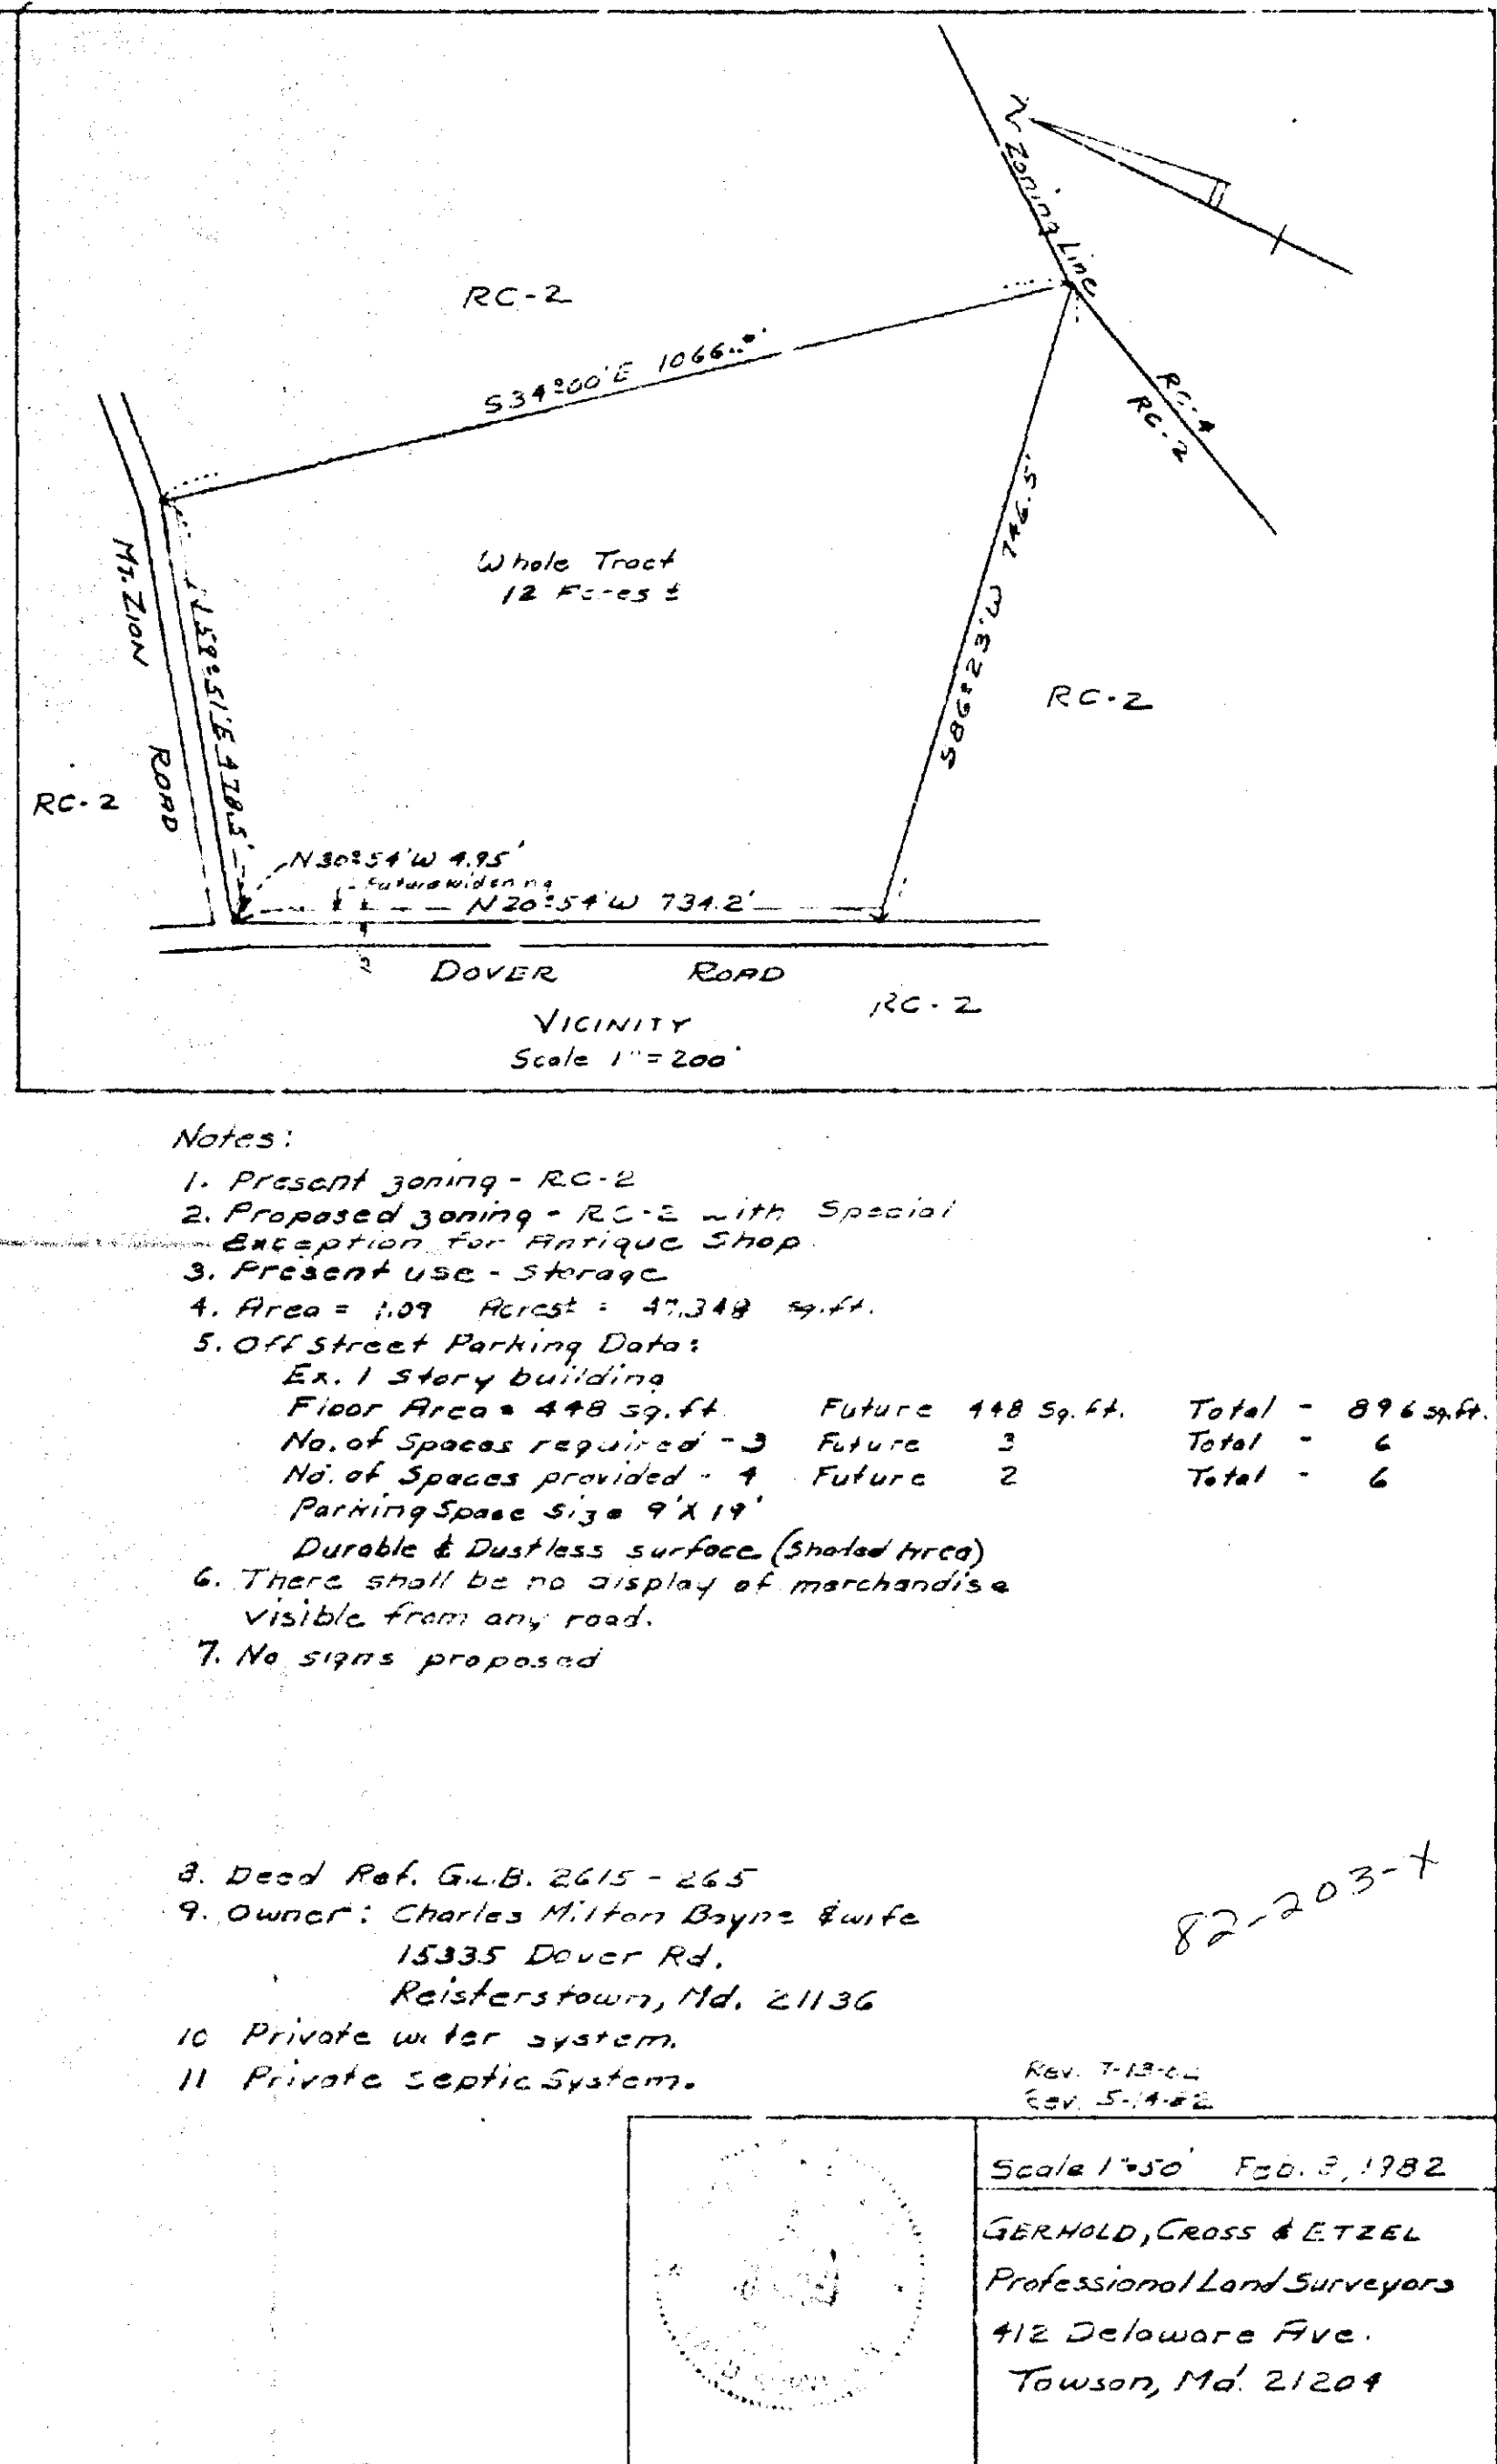 Zoning Line
RC-2
S34°00'E 1066.
RC-4
RC-2
S86°23'W 746.5'
Whole Tract
12 Acres ±
MT. ZION ROAD
N59°51'E 478.5'
RC-2
RC-2
N30°54'W 4.95'
Future widening
N20°54'W 734.2'
DOVER ROAD
RC-2
VICINITY
Scale 1"=200'
Notes:
1. Present zoning - RC-2
2. Proposed zoning - RC-2 with Special
Exception for Antique Shop.
3. Present use - Storage
4. Area = 1.09 Acres± = 47,348 sq.ft.
5. Off Street Parking Data:
Ex. 1 Story building
Floor Area = 448 sq.ft. Future 448 Sq. ft. Total - 896 sq.ft.
No. of Spaces required - 3 Future 3 Total - 6
No. of Spaces provided - 4 Future 2 Total - 6
Parking Space Size 9'X19'
Durable & Dustless surface (Shaded Area)
6. There shall be no display of merchandise
visible from any road.
7. No signs proposed
8. Deed Ref. G.L.B. 2615 - 265
9. Owner: Charles Milton Bayne & wife
15335 Dover Rd.
Reisterstown, Md. 21136
10 Private water system.
11 Private Septic System.
82-203-X
Rev.
Rev. 5-14-82
Scale 1"=50' Feb. 1982
GERHOLD, CROSS & ETZEL
Professional Land Surveyors
412 Delaware Ave.
Towson, Md. 21204